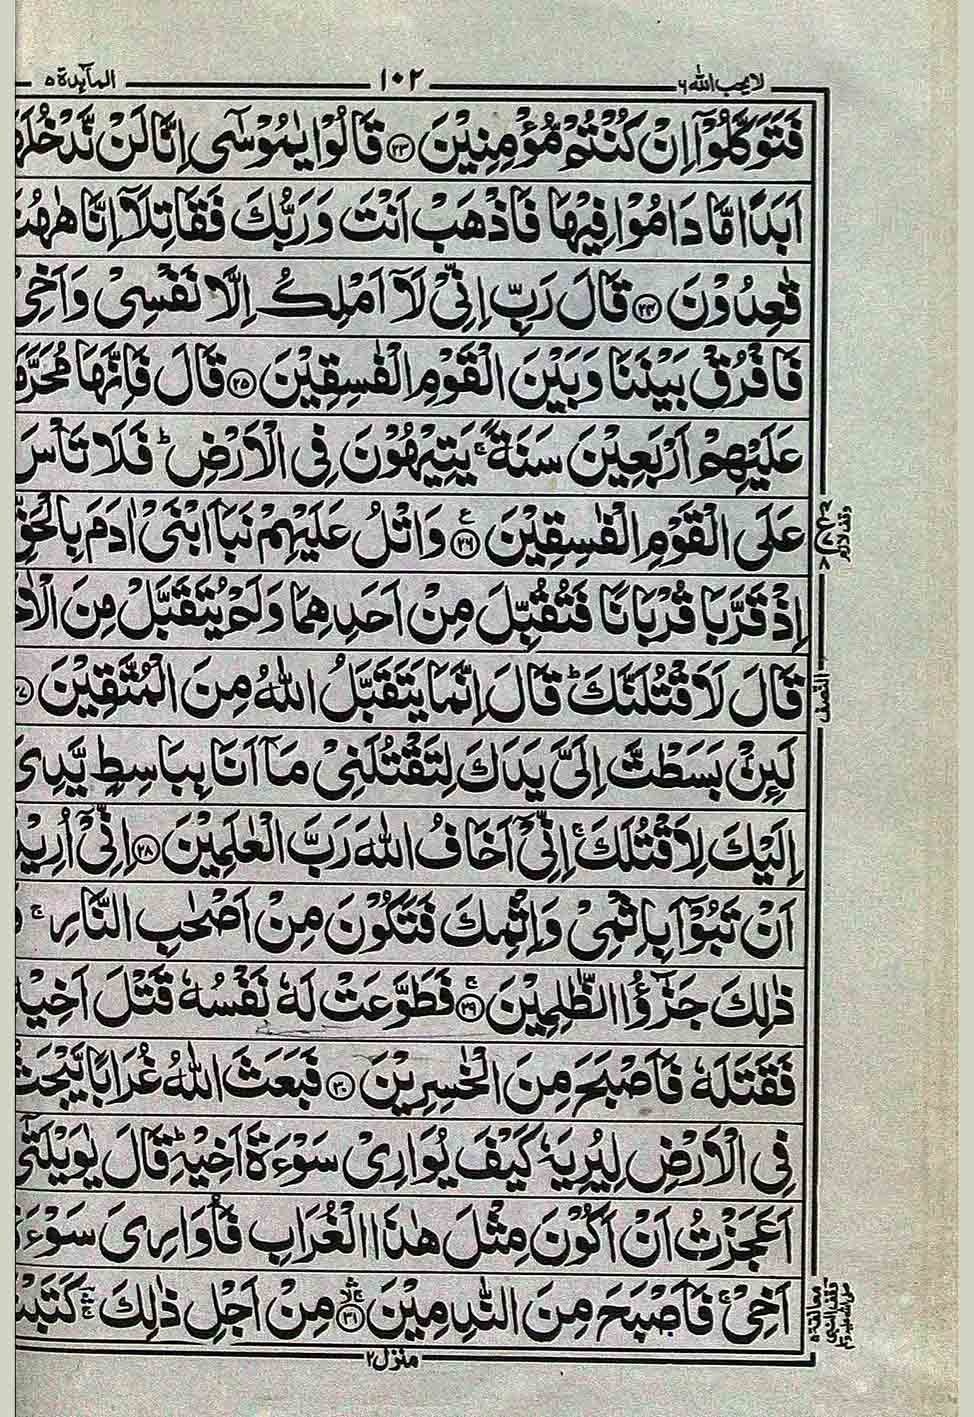 لا يحب الله ٦
١٠٢
المآىِٕدة ٥
فَتَوَكَّلُوْۤا اِنْ كُنْتُمْ مُّؤْمِنِيْنَ ٢٣ قَالُوْا يٰمُوْسٰۤى اِنَّا لَنْ نَّدْخُلَهَ
اَبَدًا مَّا دَامُوْا فِيْهَا فَاذْهَبْ اَنْتَ وَرَبُّكَ فَقَاتِلَاۤ اِنَّا هٰهُنَ
قٰعِدُوْنَ ٢٤ قَالَ رَبِّ اِنِّىْ لَاۤ اَمْلِكُ اِلَّا نَفْسِىْ وَاَخِىْ
فَافْرُقْ بَيْنَنَا وَبَيْنَ الْقَوْمِ الْفٰسِقِيْنَ ٢٥ قَالَ فَاِنَّهَا مُحَرَّمَ
عَلَيْهِمْ اَرْبَعِيْنَ سَنَةً ۚ يَتِيْهُوْنَ فِى الْاَرْضِ ؕ فَلَا تَاْسَ
عَلَى الْقَوْمِ الْفٰسِقِيْنَ ٢٦ ع وَاتْلُ عَلَيْهِمْ نَبَاَ ابْنَىْ اٰدَمَ بِالْحَقِّ
اِذْ قَرَّبَا قُرْبَانًا فَتُقُبِّلَ مِنْ اَحَدِهِمَا وَلَمْ يُتَقَبَّلْ مِنَ الْاٰخَ
قَالَ لَاَقْتُلَنَّكَ ؕ قَالَ اِنَّمَا يَتَقَبَّلُ اللّٰهُ مِنَ الْمُتَّقِيْنَ ٢٧
لَىِٕنْۢ بَسَطْتَّ اِلَىَّ يَدَكَ لِتَقْتُلَنِىْ مَاۤ اَنَا بِبَاسِطٍ يَّدِىَ
اِلَيْكَ لِاَقْتُلَكَ ۚ اِنِّىْۤ اَخَافُ اللّٰهَ رَبَّ الْعٰلَمِيْنَ ٢٨ اِنِّىْۤ اُرِيْدُ
اَنْ تَبُوْٓاَ بِاِثْمِىْ وَاِثْمِكَ فَتَكُوْنَ مِنْ اَصْحٰبِ النَّارِ ۚ
ذٰلِكَ جَزٰٓؤُا الظّٰلِمِيْنَ ۚ ٢٩ فَطَوَّعَتْ لَهٗ نَفْسُهٗ قَتْلَ اَخِيْهِ
فَقَتَلَهٗ فَاَصْبَحَ مِنَ الْخٰسِرِيْنَ ٣٠ فَبَعَثَ اللّٰهُ غُرَابًا يَّبْحَثُ
فِى الْاَرْضِ لِيُرِيَهٗ كَيْفَ يُوَارِىْ سَوْءَةَ اَخِيْهِ ؕ قَالَ يٰوَيْلَتٰۤى
اَعَجَزْتُ اَنْ اَكُوْنَ مِثْلَ هٰذَا الْغُرَابِ فَاُوَارِىَ سَوْءَةَ
اَخِىْ ۚ فَاَصْبَحَ مِنَ النّٰدِمِيْنَ ٣١ مِنْ اَجْلِ ذٰلِكَ ۚ كَتَبْنَ
وقف لازم
النصف
معانقة ٥
منزل ٢